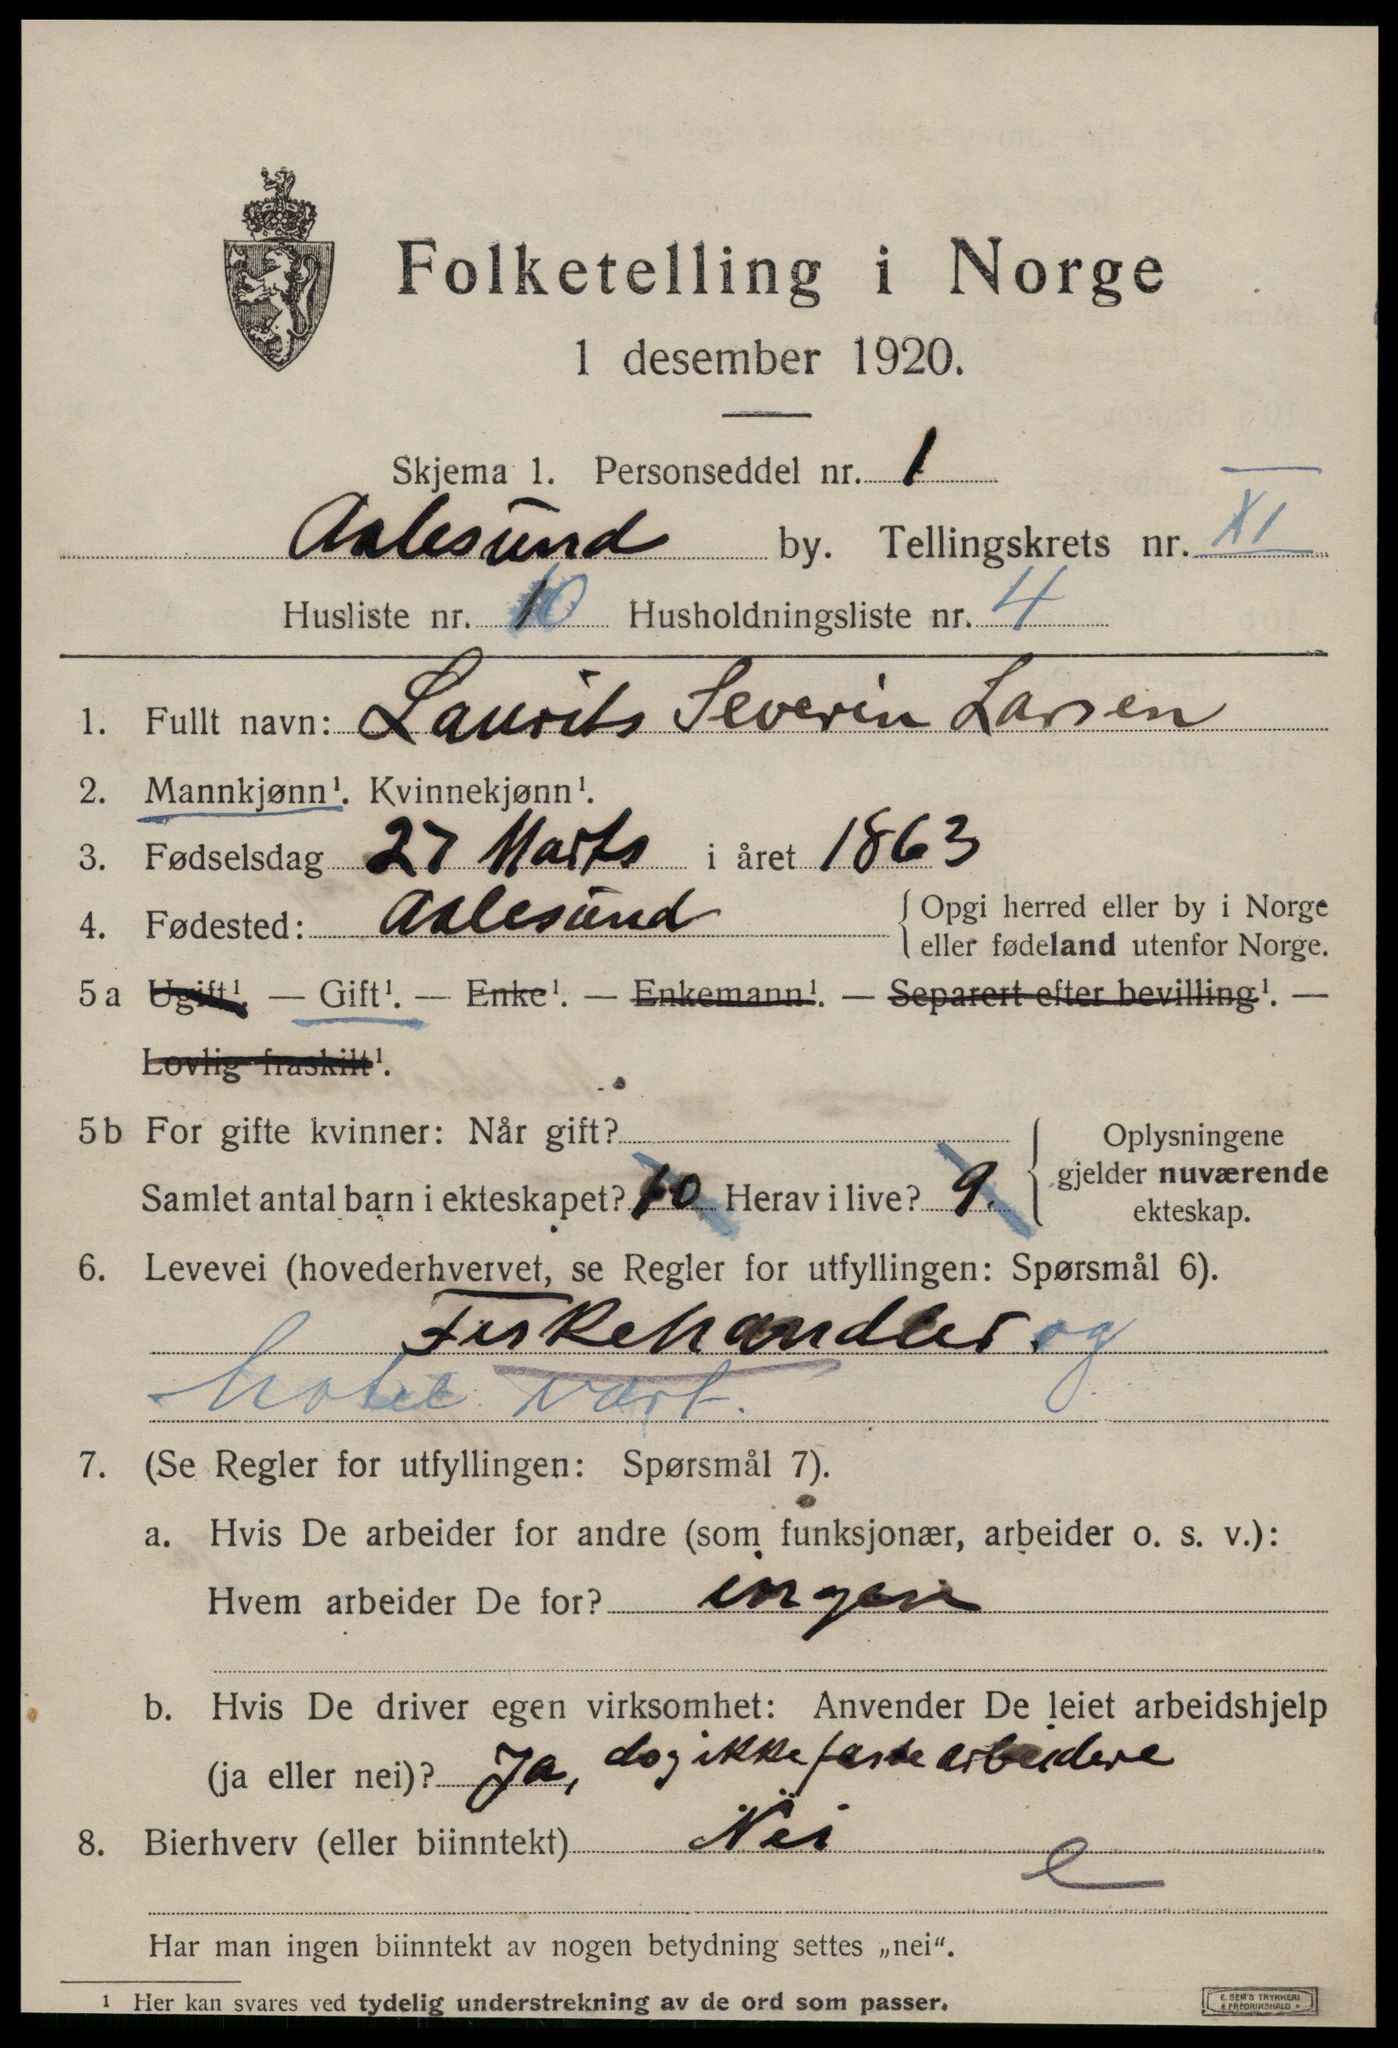 Folketelling i Norge
1 desember 1920.
Skjema 1. Personseddel nr. 1
Aalesund by. Tellingskrets nr. XI
Husliste nr. 10 Husholdningsliste nr. 4
1. Fullt navn: Laurits Severin Larsen
2. Mannkjønn¹. Kvinnekjønn¹.
3. Fødselsdag 27 Marts i året 1863
4. Fødested: Aalesund { Opgi herred eller by i Norge
eller fødeland utenfor Norge.
5a Ugift¹. — Gift¹. — Enke¹. — Enkemann¹. — Separert efter bevilling¹. —
Lovlig fraskilt¹.
5b For gifte kvinner: Når gift?
Samlet antal barn i ekteskapet? 10 Herav i live? 9.
Oplysningene
gjelder nuværende
ekteskap.
6. Levevei (hovederhvervet, se Regler for utfyllingen: Spørsmål 6).
Fiskehandler og
hotel vært.
7. (Se Regler for utfyllingen: Spørsmål 7).
a. Hvis De arbeider for andre (som funksjonær, arbeider o. s. v.):
Hvem arbeider De for? ingen
b. Hvis De driver egen virksomhet: Anvender De leiet arbeidshjelp
(ja eller nei)? Ja, dog ikke faste arbeidere
8. Bierhverv (eller biinntekt) Nei
e
Har man ingen biinntekt av nogen betydning settes „nei“.
¹ Her kan svares ved tydelig understrekning av de ord som passer.
E. SEM'S TRYKKERI
FREDRIKSHALD